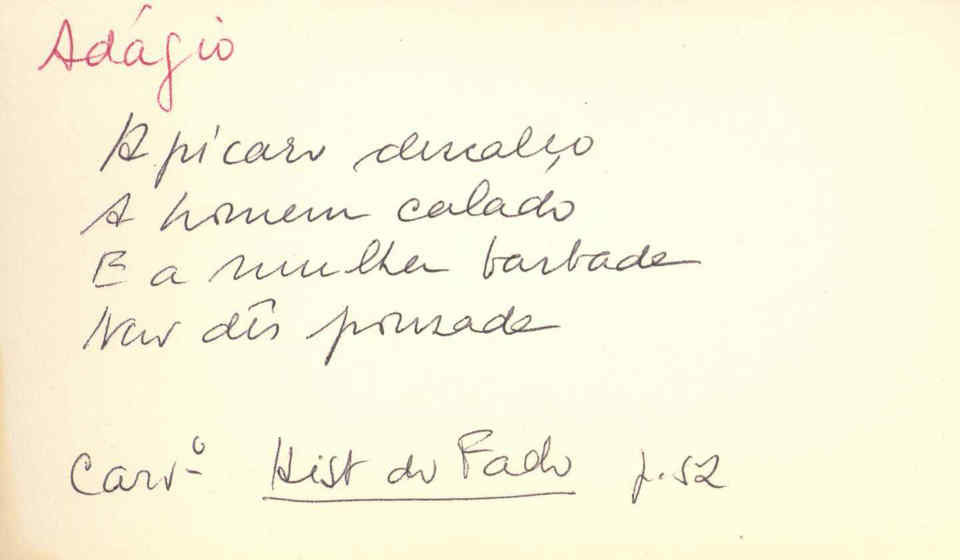 Adágio
A pícaro descalço
A homem calado
E a mulher barbada
Não dês pousada
Carvº Hist do Fado p. 52